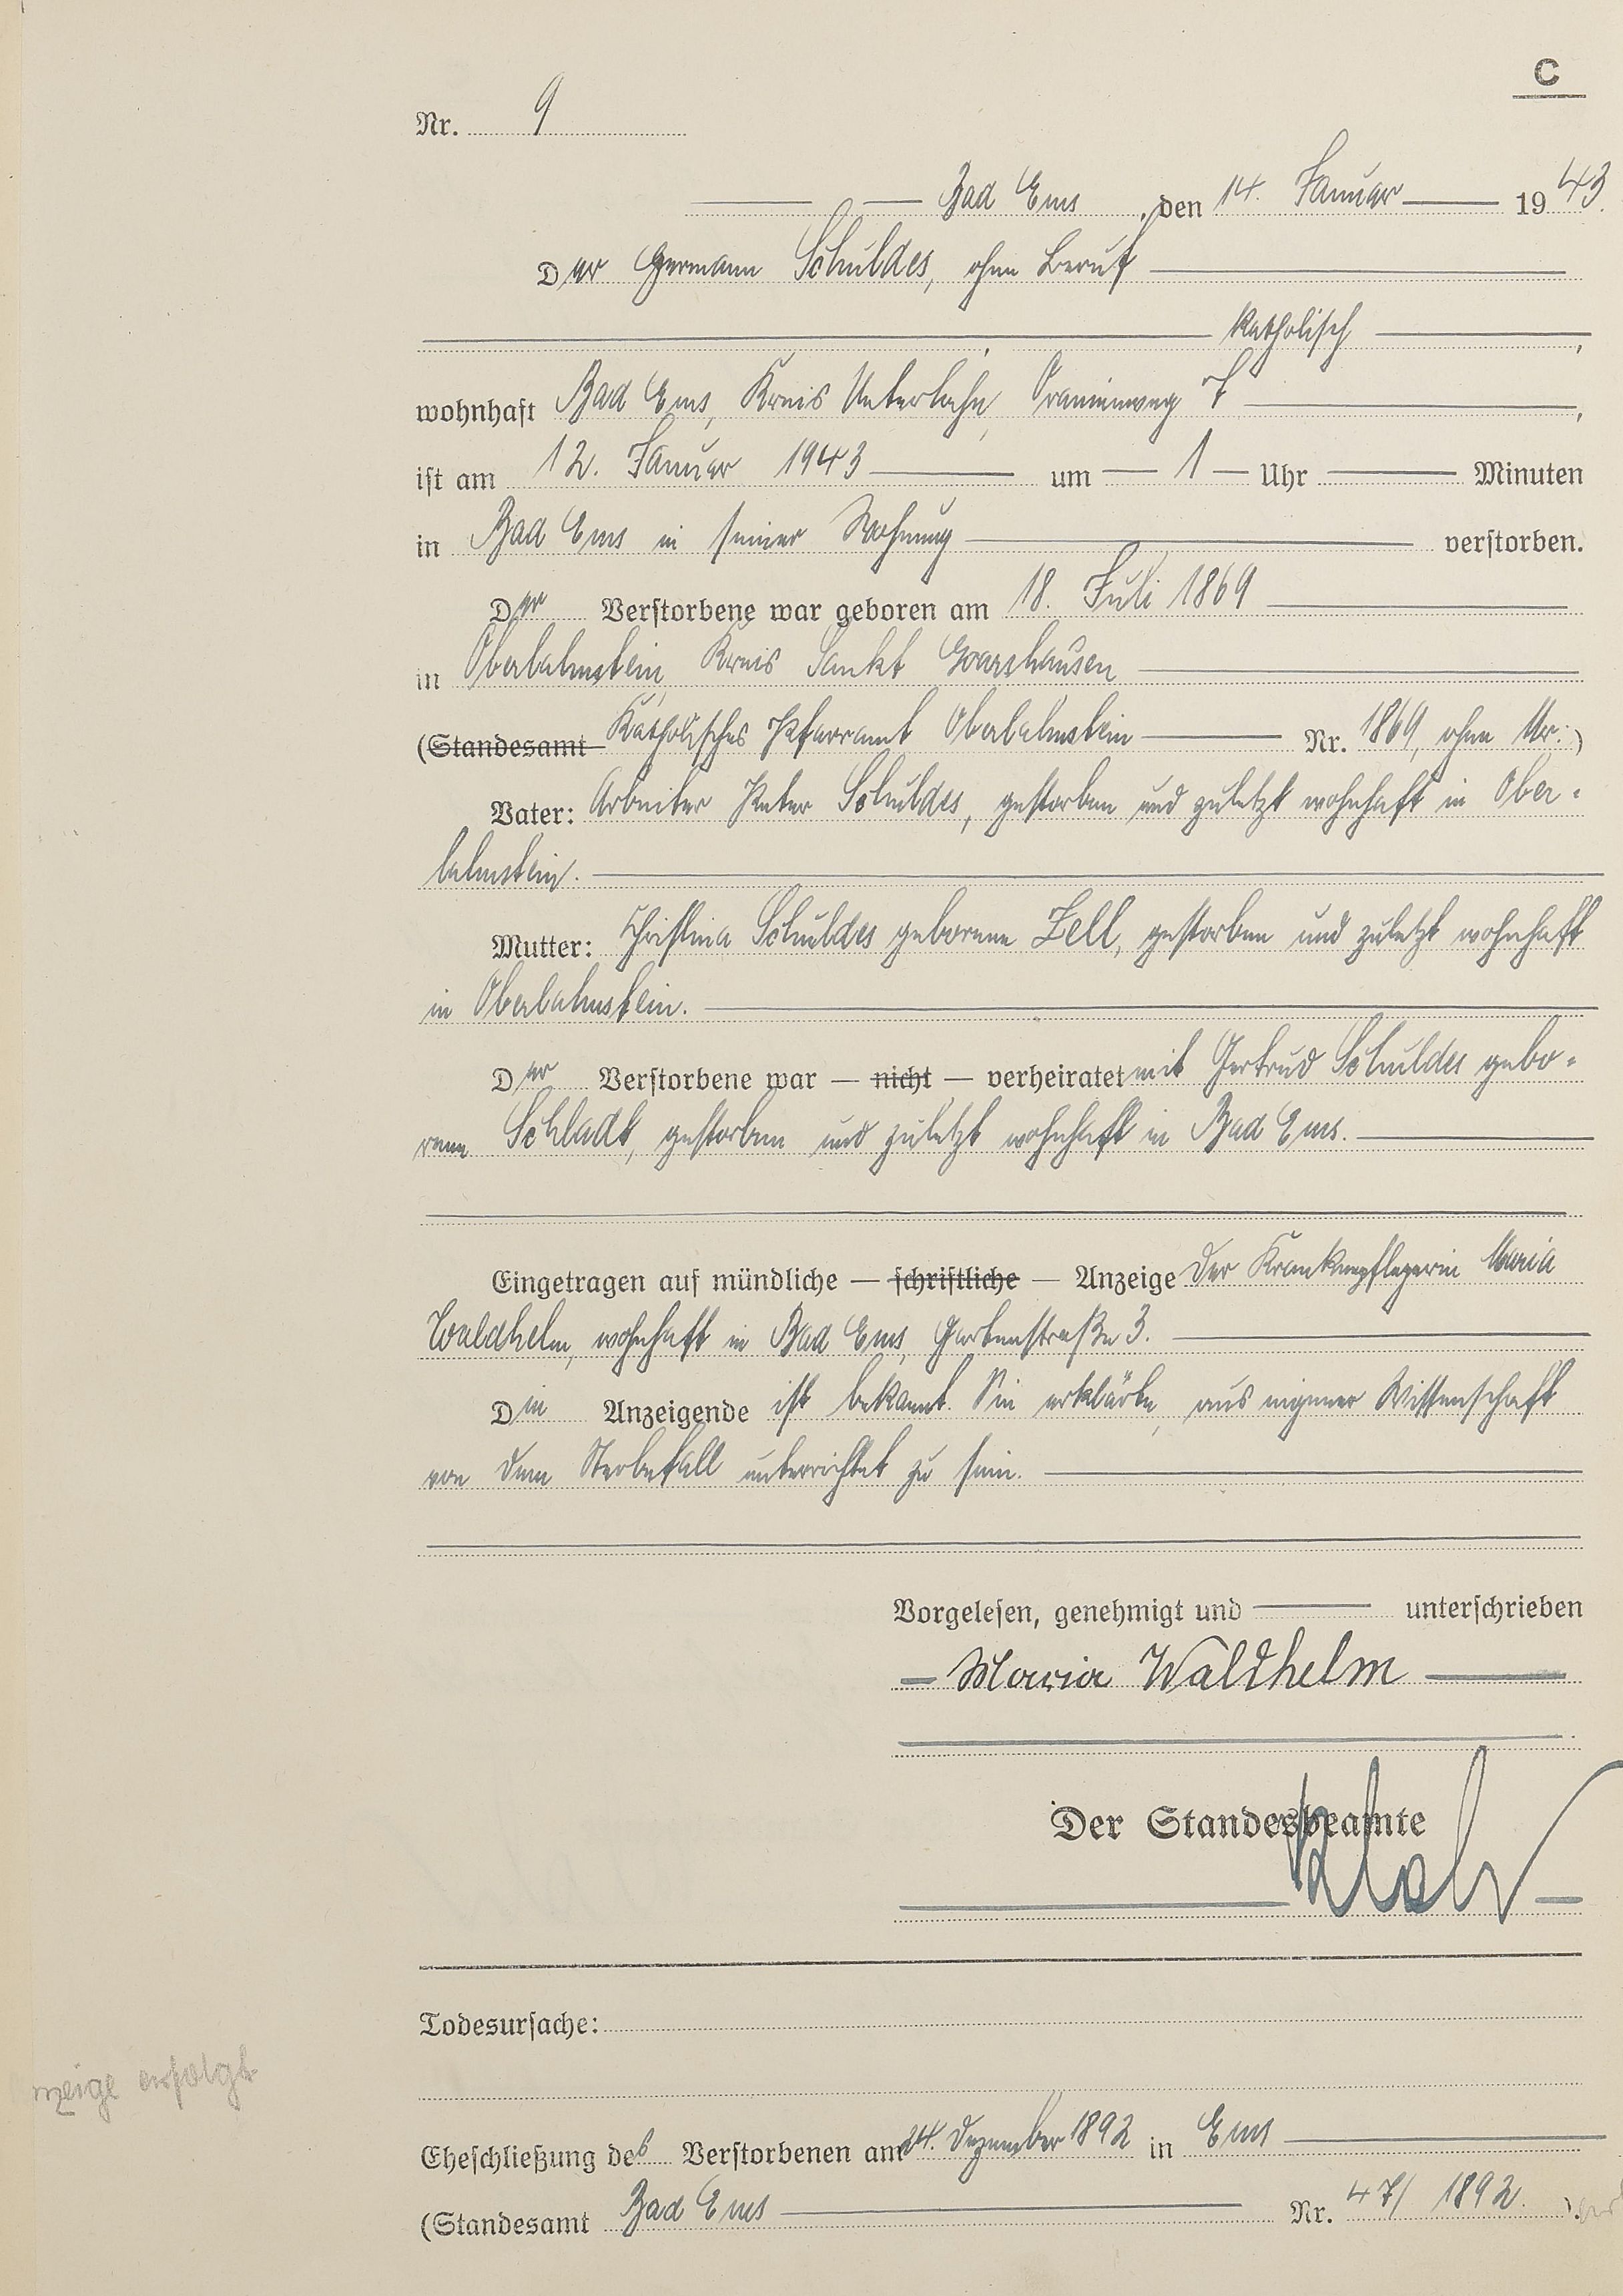 C
Nr. 9
Bad Ems, den 14. Januar 1943.
Der Hermann Schuldes, ohne Beruf
katholisch,
wohnhaft Bad Ems, Kreis Unterlahn, Oranienweg 7,
ist am 12. Januar 1943 um 1 Uhr Minuten
in Bad Ems in seiner Wohnung verstorben.
Der Verstorbene war geboren am 18. Juli 1869
in Oberlahnstein, Kreis Sankt Goarshausen
(Standesamt Katholisches Pfarramt Oberlahnstein Nr. 1869, ohne Nr.)
Vater: Arbeiter Peter Schuldes, gestorben und zuletzt wohnhaft in Ober-
lahnstein.
Mutter: Christina Schuldes geborene Zell, gestorben und zuletzt wohnhaft
in Oberlahnstein.
Der Verstorbene war — nicht — verheiratet mit Gertrud Schuldes gebo-
rene Schladt, gestorben und zuletzt wohnhaft in Bad Ems.
Eingetragen auf mündliche — schriftliche — Anzeige der Krankenpflegerin Maria
Waldhelm, wohnhaft in Bad Ems, Gartenstraße 3.
Die Anzeigende ist bekannt. Sie erklärte, aus eigener Wissenschaft
von dem Sterbefall unterrichtet zu sein.
Vorgelesen, genehmigt und unterschrieben
Maria Waldhelm
Der Standesbeamte
Todesursache:
nzeige erfolgt
Eheschließung des Verstorbenen am 24. Dezember 1892 in Ems
(Standesamt Bad Ems Nr. 47/ 1892.).